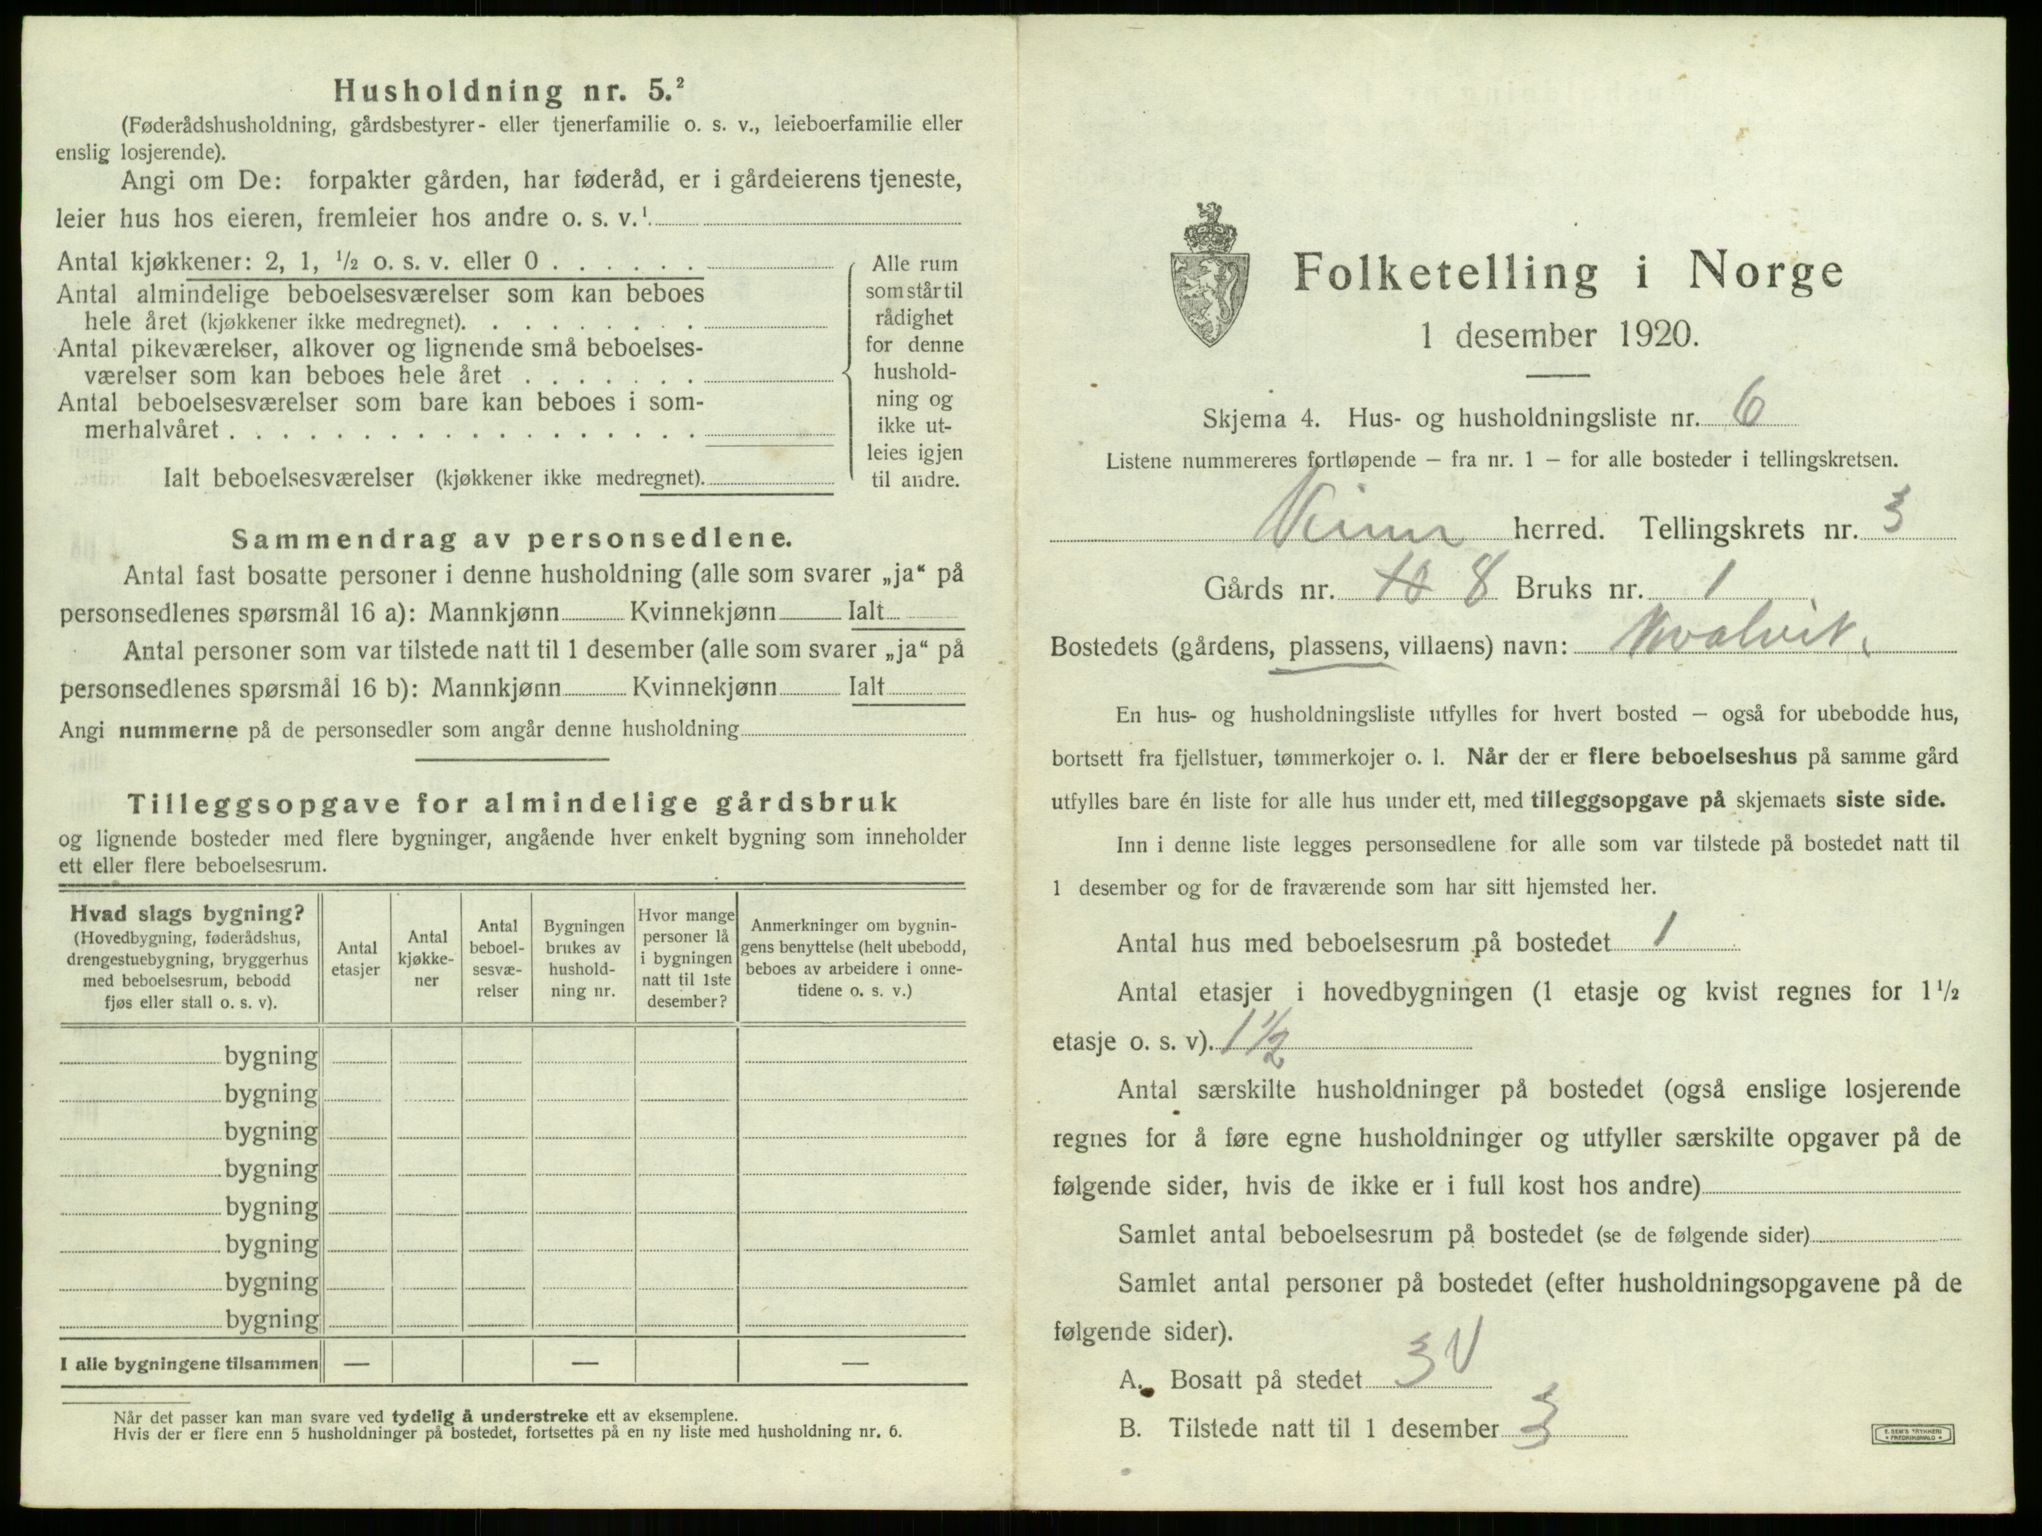 Husholdning nr. 5.²
(Føderådshusholdning, gårdsbestyrer- eller tjenerfamilie o. s. v., leieboerfamilie eller
enslig losjerende).
Angi om De: forpakter gården, har føderåd, er i gårdeierens tjeneste,
leier hus hos eieren, fremleier hos andre o. s. v.¹
Antal kjøkkener: 2, 1, ½ o. s. v. eller 0 . . . . . .
Antal almindelige beboelsesværelser som kan beboes
hele året (kjøkkener ikke medregnet). . . . . . . . .
Antal pikeværelser, alkover og lignende små beboelses-
værelser som kan beboes hele året . . . . . . .
Antal beboelsesværelser som bare kan beboes i som-
merhalvåret . . . . . . . . . . . . . . . . . .
Ialt beboelsesværelser (kjøkkener ikke medregnet).
Alle rum
som står til
rådighet
for denne
hushold-
ning og
ikke ut-
leies igjen
til andre.
Sammendrag av personsedlene.
Antal fast bosatte personer i denne husholdning (alle som svarer „ja“ på
personsedlenes spørsmål 16 a): Mannkjønn Kvinnekjønn Ialt
Antal personer som var tilstede natt til 1 desember (alle som svarer „ja“ på
personsedlenes spørsmål 16 b): Mannkjønn Kvinnekjønn Ialt
Angi nummerne på de personsedler som angår denne husholdning
Tilleggsopgave for almindelige gårdsbruk
og lignende bosteder med flere bygninger, angående hver enkelt bygning som inneholder
ett eller flere beboelsesrum.
Hvad slags bygning?
(Hovedbygning, føderådshus,
drengestuebygning, bryggerhus
med beboelsesrum, bebodd
fjøs eller stall o. s. v).
Antal
etasjer
Antal
kjøkke-
ner
Antal
beboel-
sesvæ-
relser
Bygningen
brukes av
hushold-
ning nr.
Hvor mange
personer lå
i bygningen
natt til 1ste
desember?
Anmerkninger om bygnin-
gens benyttelse (helt ubebodd,
beboes av arbeidere i onne-
tidene o. s. v.)
bygning
bygning
bygning
bygning
bygning
bygning
bygning
bygning
I alle bygningene tilsammen — — —
Når det passer kan man svare ved tydelig å understreke ett av eksemplene.
Hvis der er flere enn 5 husholdninger på bostedet, fortsettes på en ny liste med husholdning nr. 6.
Folketelling i Norge
1 desember 1920.
Skjema 4. Hus- og husholdningsliste nr. 6
Listene nummereres fortløpende – fra nr. 1 – for alle bosteder i tellingskretsen.
Kinn herred. Tellingskrets nr. 3
Gårds nr. 10 8 Bruks nr. 1
Bostedets (gårdens, plassens, villaens) navn: Kvalvik.
En hus- og husholdningsliste utfylles for hvert bosted – også for ubebodde hus,
bortsett fra fjellstuer, tømmerkojer o. l. Når der er flere beboelseshus på samme gård
utfylles bare én liste for alle hus under ett, med tilleggsopgave på skjemaets siste side.
Inn i denne liste legges personsedlene for alle som var tilstede på bostedet natt til
1 desember og for de fraværende som har sitt hjemsted her.
Antal hus med beboelsesrum på bostedet 1
Antal etasjer i hovedbygningen (1 etasje og kvist regnes for 1½
etasje o. s. v). 1½
Antal særskilte husholdninger på bostedet (også enslige losjerende
regnes for å føre egne husholdninger og utfyller særskilte opgaver på de
følgende sider, hvis de ikke er i full kost hos andre)
Samlet antal beboelsesrum på bostedet (se de følgende sider)
Samlet antal personer på bostedet (efter husholdningsopgavene på de
følgende sider).
A. Bosatt på stedet 3 V
B. Tilstede natt til 1 desember 3
E. SEM'S TRYKKERI
FREDRIKSHALD